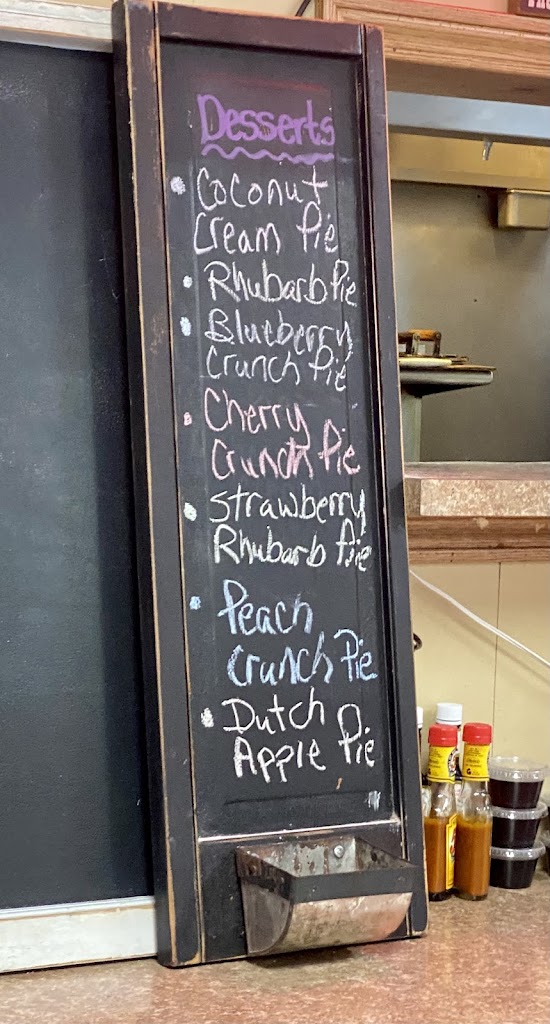 Desserts
• Coconut
Cream Pie
• Rhubarb Pie
• Blueberry
Crunch Pie
• Cherry
Crunch Pie
• Strawberry
Rhubarb Pie
• Peach
Crunch Pie
• Dutch
Apple Pie